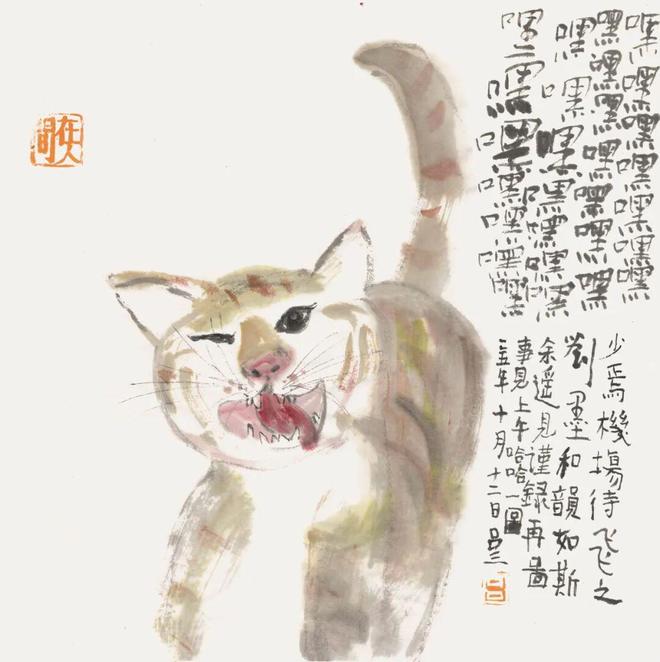 嘿嘿嘿嘿嘿嘿嘿
嘿嘿嘿嘿嘿嘿嘿
嘿嘿嘿嘿嘿嘿嘿
嘿二嘿嘿嘿嘿嘿嘿嘿
少焉機塲待飞飞之
劉墨和韻如斯
余遥見谨録再畵
事見上午哈哈一圖
年十月十二日吕三